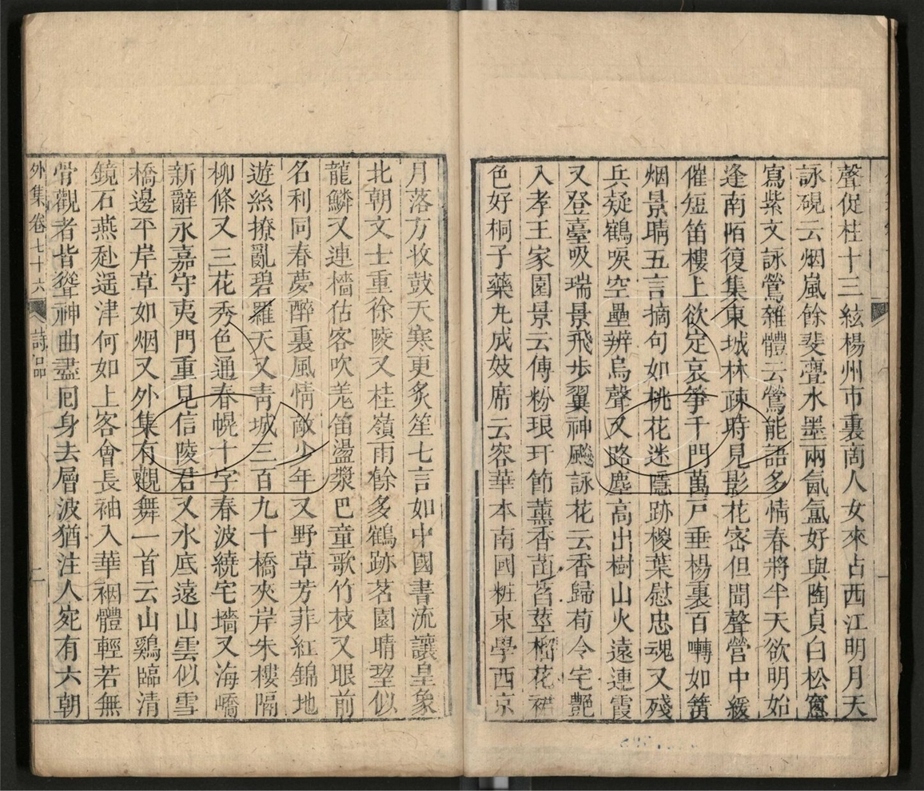 聲促桂十三絃楊州市裏商人女來占西江明月天
詠硯云烟嵐餘斐亹水墨兩氤氳好與陶貞白松窻
寫紫文詠鶯雜體云鶯能語多情春將半天欲明始
逢南陌復集東城林疎時見影花密但聞聲營中緩
催短笛樓上欲定哀箏千門萬戸垂楊裏百囀如簧
烟景晴五言摘句如桃花迷隱跡楥葉慰忠魂又殘
兵疑鶴唳空壘辨烏聲又路塵高出樹山火遠連霞
又登臺吸瑞景飛步翼神飈詠花云香歸荀令宅艷
入孝王家園景云傳粉琅玕節薰香菡萏莖榴花裙
色好桐子藥丸成妓席云容華本南國粧束學西京
月落方收鼓天寒更炙笙七言如中國書流讓皇象
北朝文士重徐陵又桂嶺雨餘多鶴跡茗園晴望似
龍鱗又連檣估客吹羗笛盪槳巴童歌竹枝又眼前
名利同春夢醉裏風情敵少年又野草芳菲紅錦地
遊絲撩亂碧羅天又靑城三百九十橋夾岸朱樓隔
柳條又三花秀色通春幌十字春波繞宅墻又海嶠
新辭永嘉守夷門重見信陵君又水底遠山雲似雪
橋邊平岸草如烟又外集有觀舞一首云山鷄臨清
鏡石燕赴遥津何如上客會長袖入華裀體輕若無
骨觀者皆聳神曲盡囘身去層波猶注人宛有六朝
外集卷七十六 詩品 二